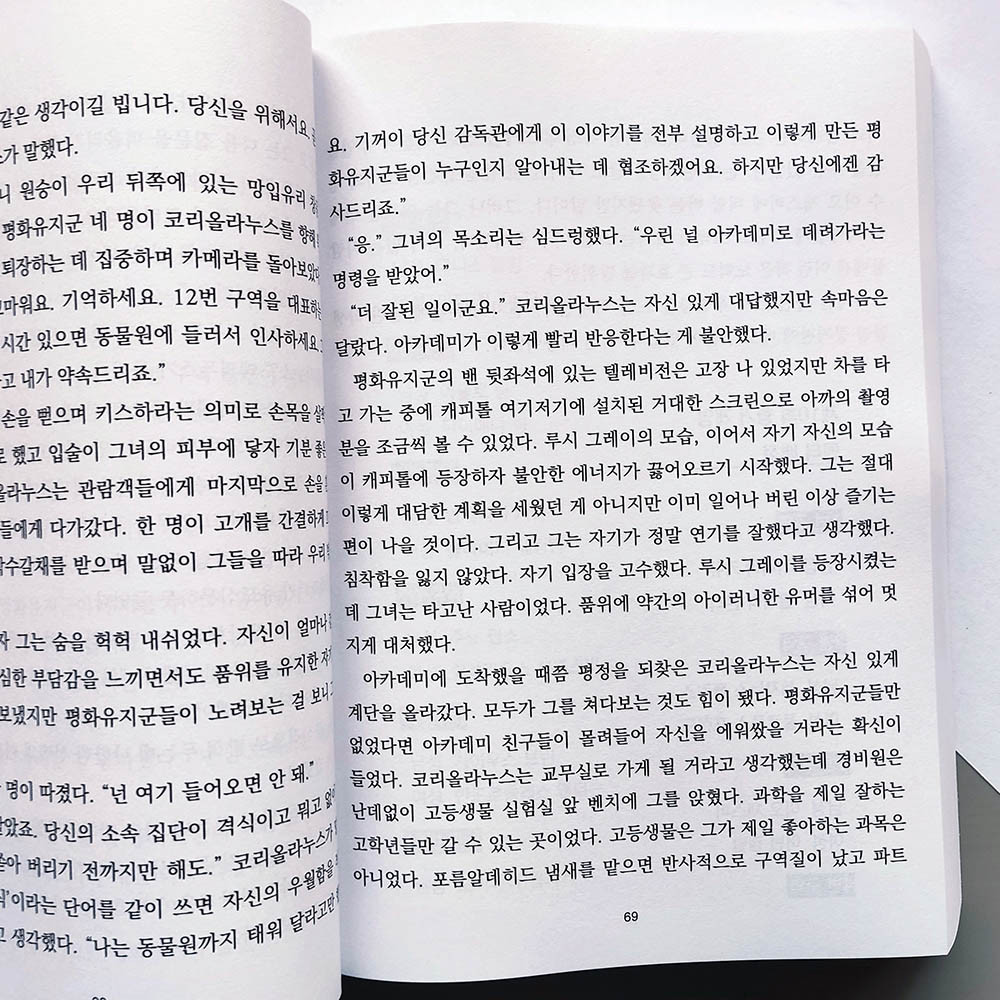 같은 생각이길 빕니다. 당신을 위해서요.
가 말했다.
원숭이 우리 뒤쪽에 있는 망입유리
평화유지군 네 명이 코리올라누스를 향해
퇴장하는 데 집중하며 카메라를 돌아보았다
기억하세요. 12번 구역을 대표하는
시간 있으면 동물원에 들러서 인사하세요.
고 내가 약속드리죠.”
손을 뻗으며 키스하라는 의미로 손목을
로 했고 입술이 그녀의 피부에 닿자 기분
올라누스는 관람객들에게 마지막으로 손을
들에게 다가갔다. 한 명이 고개를 간결하게
박수갈채를 받으며 말없이 그들을 따라 우리
그는 숨을 헉헉 내쉬었다. 자신이 얼마나
심한 부담감을 느끼면서도 품위를 유지한
보냈지만 평화유지군들이 노려보는 걸 보니
명이 따졌다. “넌 여기 들어오면 안 돼.”
당신의 소속 집단이 격식이고 뭐고
버리기 전까지만 해도.” 코리올라누스가
이라는 단어를 같이 쓰면 자신의 우월함을
고 생각했다. “나는 동물원까지 태워 달라고만
요. 기꺼이 당신 감독관에게 이 이야기를 전부 설명하고 이렇게 만든 평
화유지군들이 누구인지 알아내는 데 협조하겠어요. 하지만 당신에겐 감
사드리죠.”
“응.” 그녀의 목소리는 심드렁했다. “우린 널 아카데미로 데려가라는
명령을 받았어.”
“더 잘된 일이군요.” 코리올라누스는 자신 있게 대답했지만 속마음은
달랐다. 아카데미가 이렇게 빨리 반응한다는 게 불안했다.
평화유지군의 밴 뒷좌석에 있는 텔레비전은 고장 나 있었지만 차를 타
고 가는 중에 캐피톨 여기저기에 설치된 거대한 스크린으로 아까의 촬영
분을 조금씩 볼 수 있었다. 루시 그레이의 모습, 이어서 자기 자신의 모습
이 캐피톨에 등장하자 불안한 에너지가 끓어오르기 시작했다. 그는 절대
이렇게 대담한 계획을 세웠던 게 아니지만 이미 일어나 버린 이상 즐기는
편이 나을 것이다. 그리고 그는 자기가 정말 연기를 잘했다고 생각했다.
침착함을 잃지 않았다. 자기 입장을 고수했다. 루시 그레이를 등장시켰는
데 그녀는 타고난 사람이었다. 품위에 약간의 아이러니한 유머를 섞어 멋
지게 대처했다.
아카데미에 도착했을 때쯤 평정을 되찾은 코리올라누스는 자신 있게
계단을 올라갔다. 모두가 그를 쳐다보는 것도 힘이 됐다. 평화유지군들만
없었다면 아카데미 친구들이 몰려들어 자신을 에워쌌을 거라는 확신이
들었다. 코리올라누스는 교무실로 가게 될 거라고 생각했는데 경비원은
난데없이 고등생물 실험실 앞 벤치에 그를 앉혔다. 과학을 제일 잘하는
고학년들만 갈 수 있는 곳이었다. 고등생물은 그가 제일 좋아하는 과목은
아니었다. 포름알데히드 냄새를 맡으면 반사적으로 구역질이 났고 파트
69